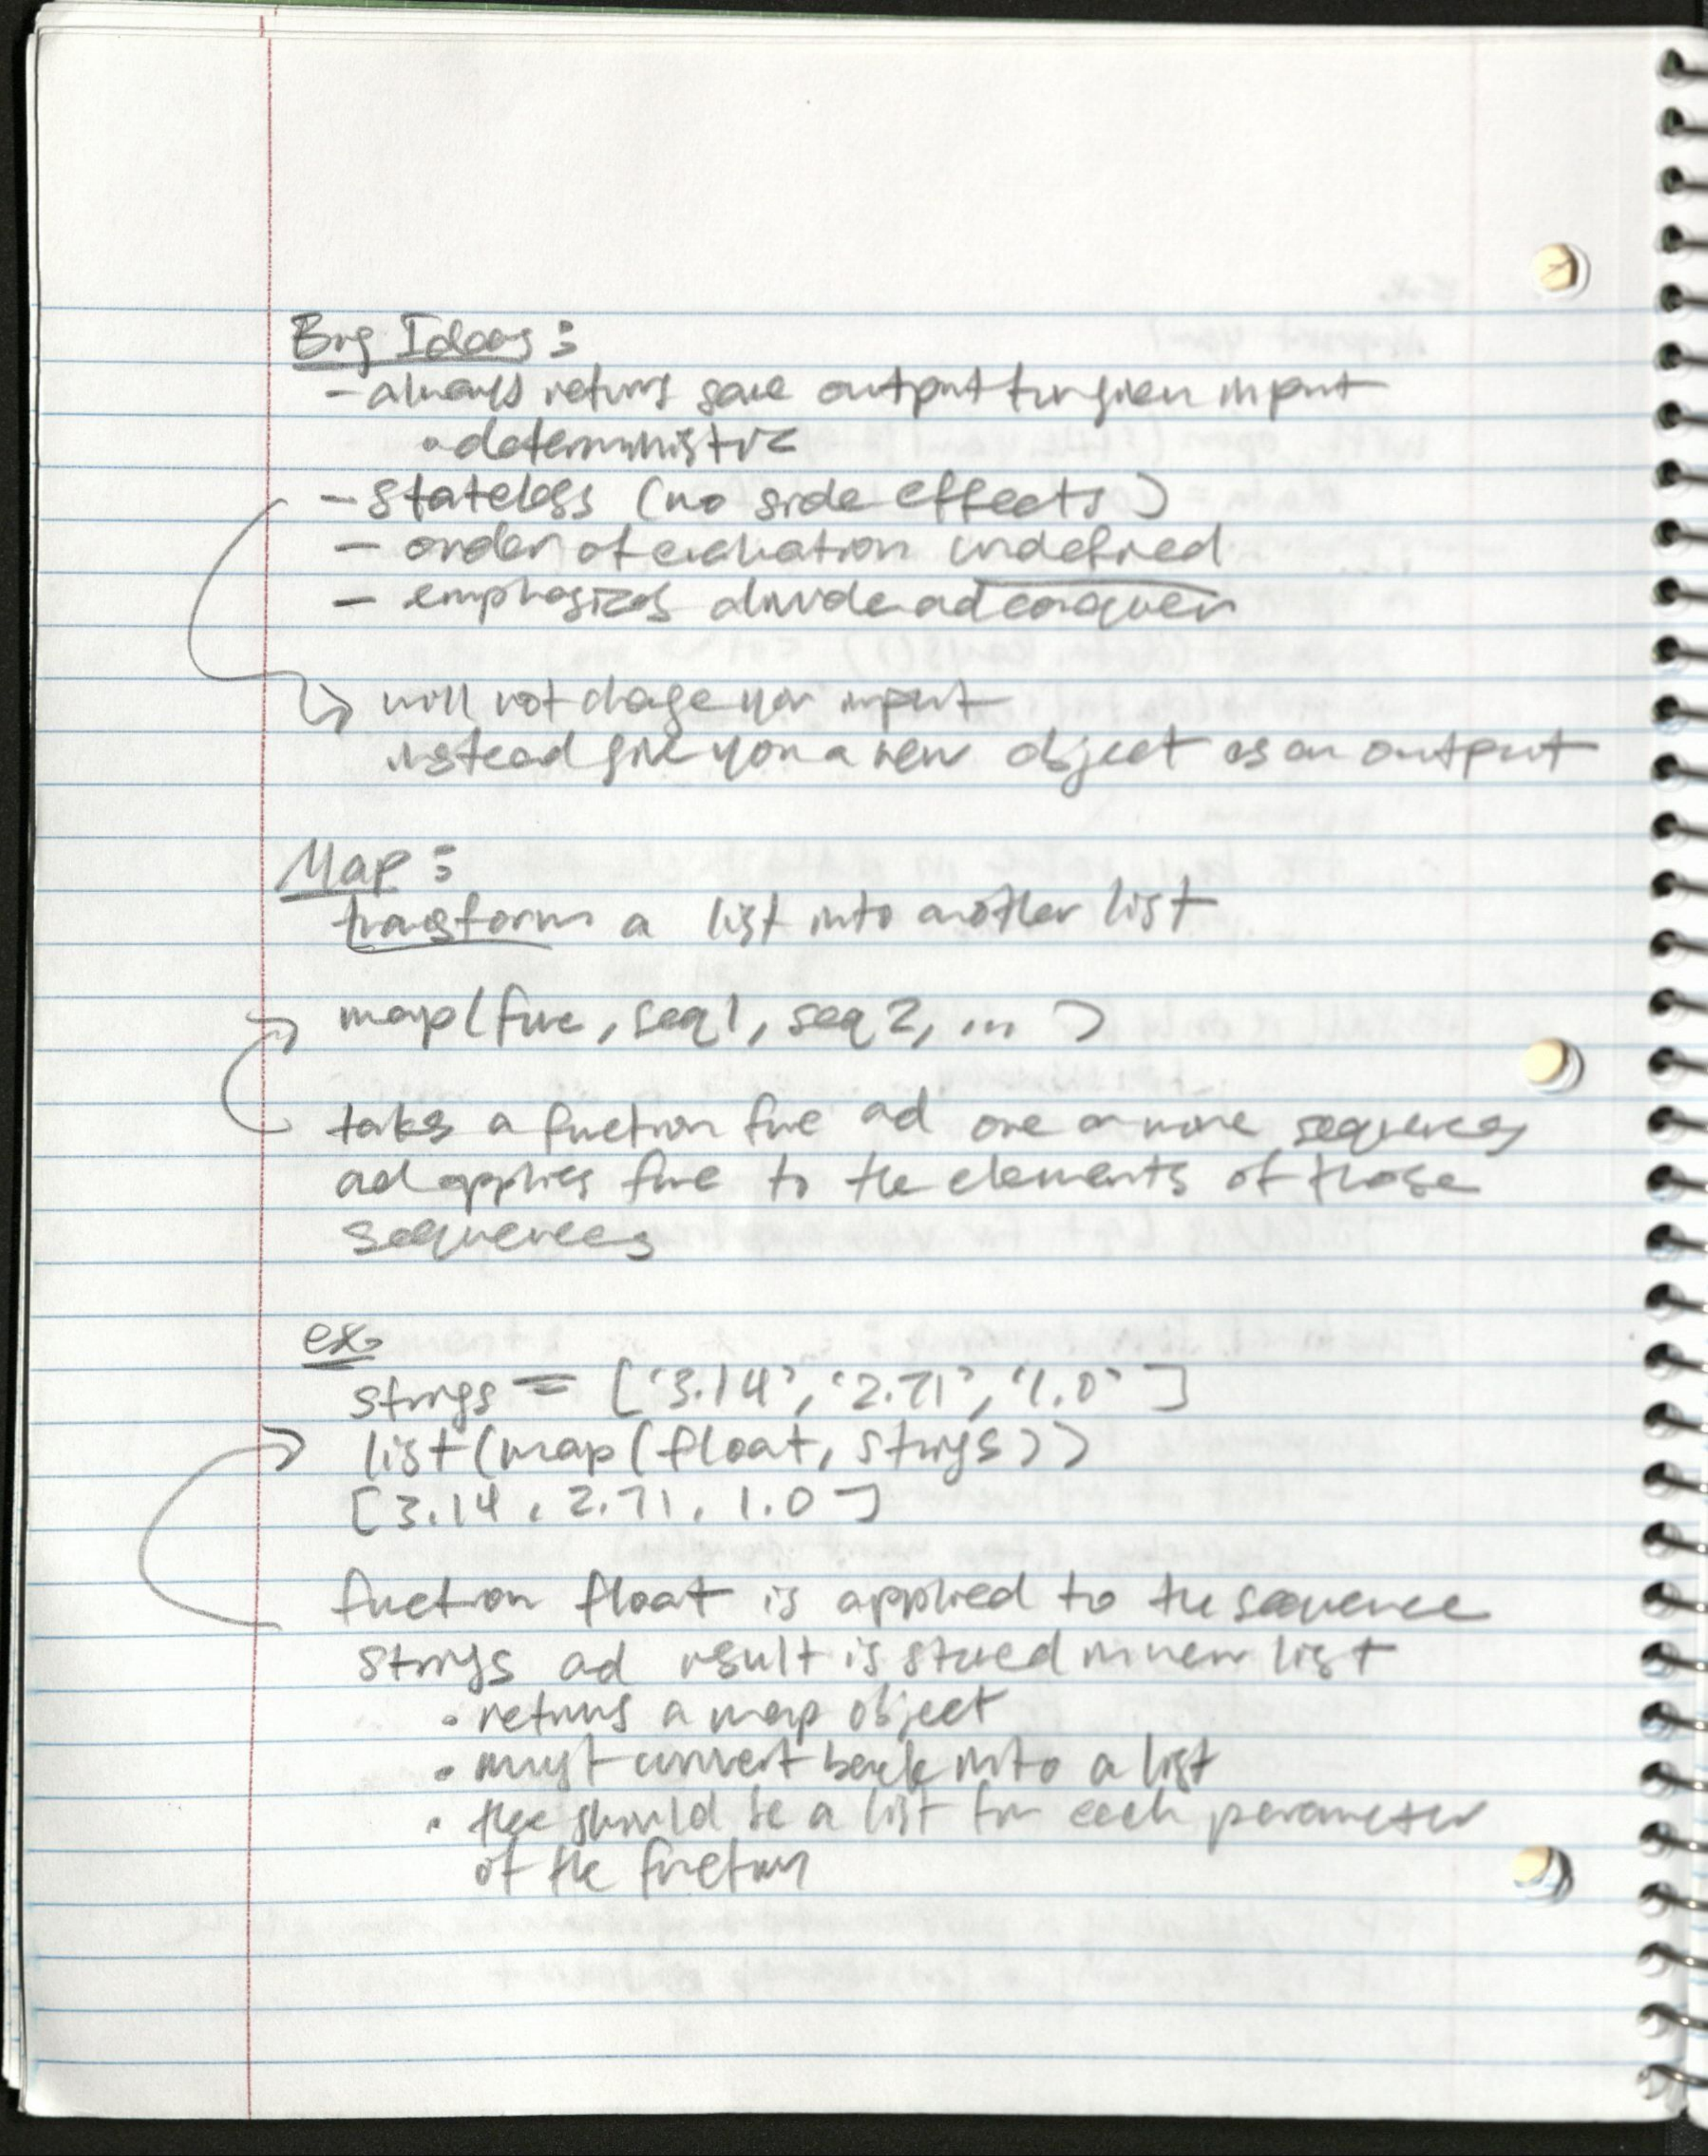 Big Ideas:
- always returns same output for given input
• deterministic
- stateless (no side effects)
- order of evaluation undefined
- emphasizes divide and conquer
will not change your input
instead give you a new object as an output
Map:
transform a list into another list
map(func, seq1, seq2, ... )
takes a function func and one or more sequences
and applies func to the elements of those
sequences
ex.
strings = ['3.14', '2.71', '1.0']
list(map(float, strings))
[3.14, 2.71, 1.0]
function float is applied to the sequence
strings and result is stored in new list
• returns a map object
• must convert back into a list
• there should be a list for each parameter
of the function